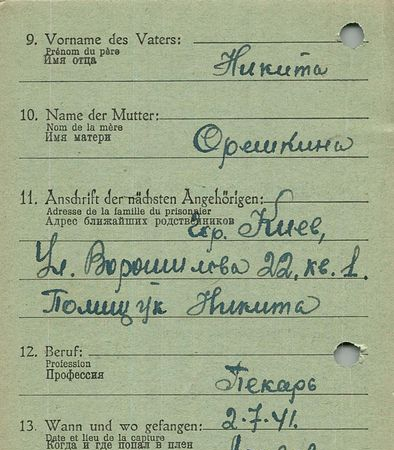 9. Vorname des Vaters:
Prénom du père
Имя отца
Никита
10. Name der Mutter:
Nom de la mère
Имя матери
Орешкина
11. Anschrift der nächsten Angehörigen:
Adresse de la famille du prisonnier
Адрес ближайших родственников
гр. Киев,
Ул. Ворошилова 22, кв. 1.
Полищук Никита
12. Beruf:
Profession
Профессия
Пекарь
13. Wann und wo gefangen: 2.7.41.
Date et lieu de la capture
Когда и где попал в плен